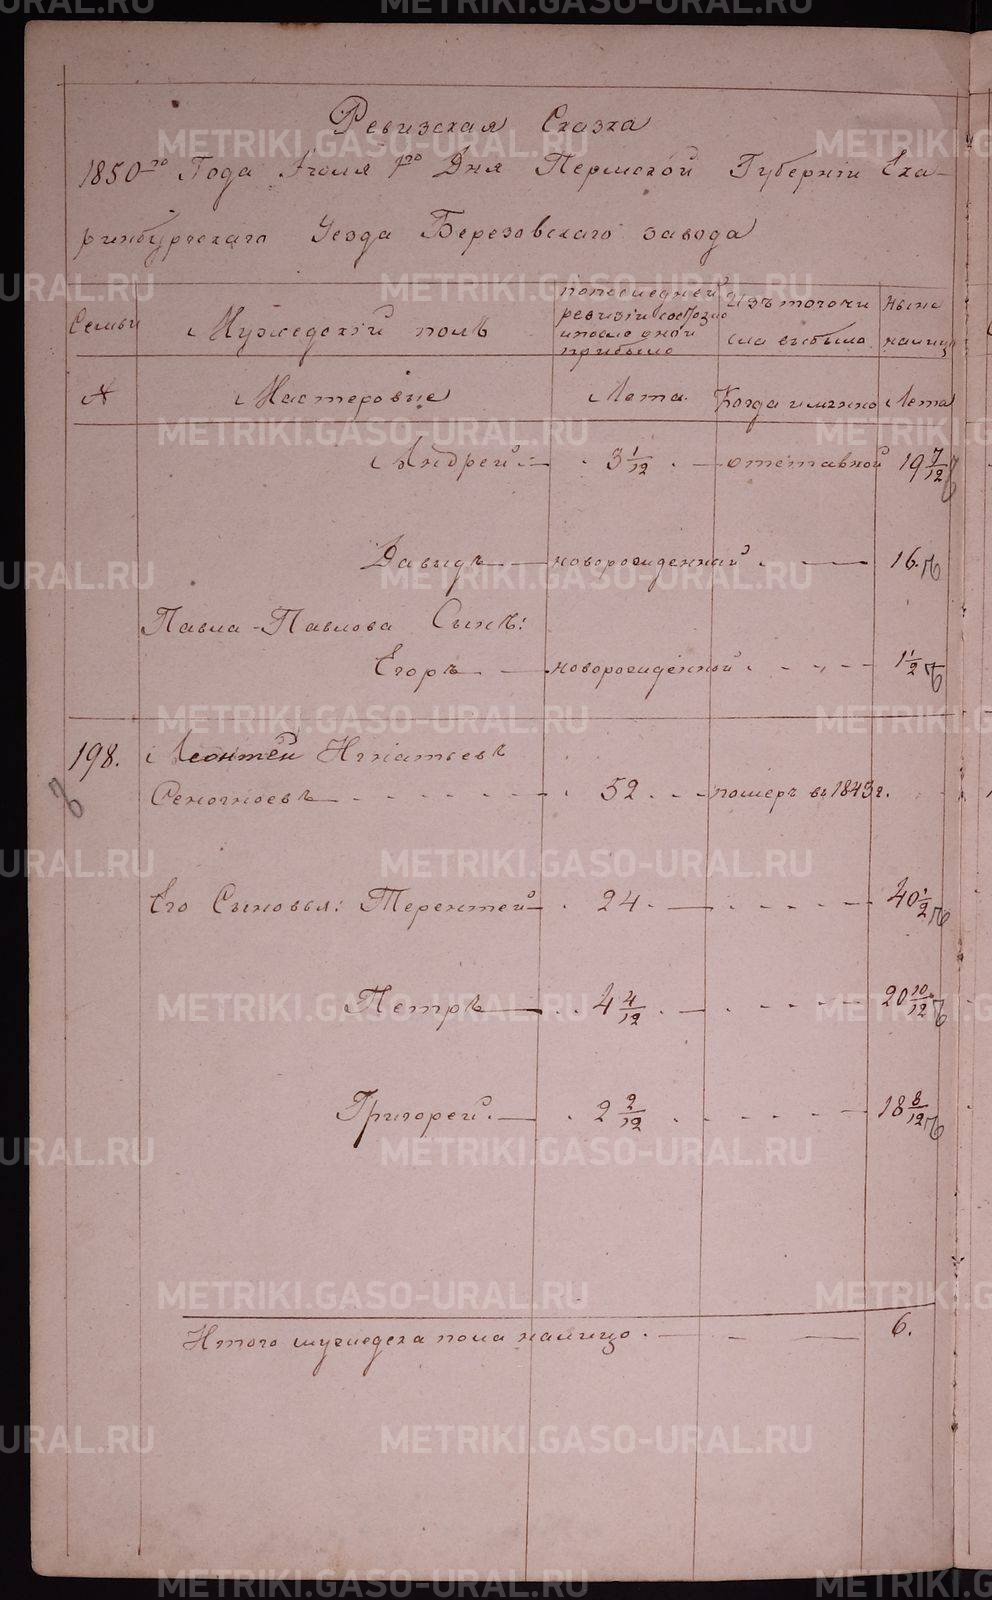 Ревизская Сказка
1850-го Года Іюля 1го Дня Пермской Губерніи Ека-
ринбургскаго Уезда Березовскаго завода
Семьи
Мужедскій полъ
попоследней ревизіи состояло ипосле оной прибыло
Изъ тогочи сла выбыло
Ныне налицо
№
Мастеровые
Лета
Когда имянно
Лета
Андрей 3 1/12 отставной 19 7/12
Давыдъ новорожденный 16.
Павла-Павлова Сынъ:
Егоръ новорожденный 1 1/2
198. Леонтей Игнатьевъ
52 померъ въ 1843 г.
Его Сыновья: Терентей 24 40 1/2
Петръ 4 4/12 20 10/12
Григорей 2 2/12 18 8/12
Итого мужедска пола налицо 6.
METRIKI.GASO-URAL.RU